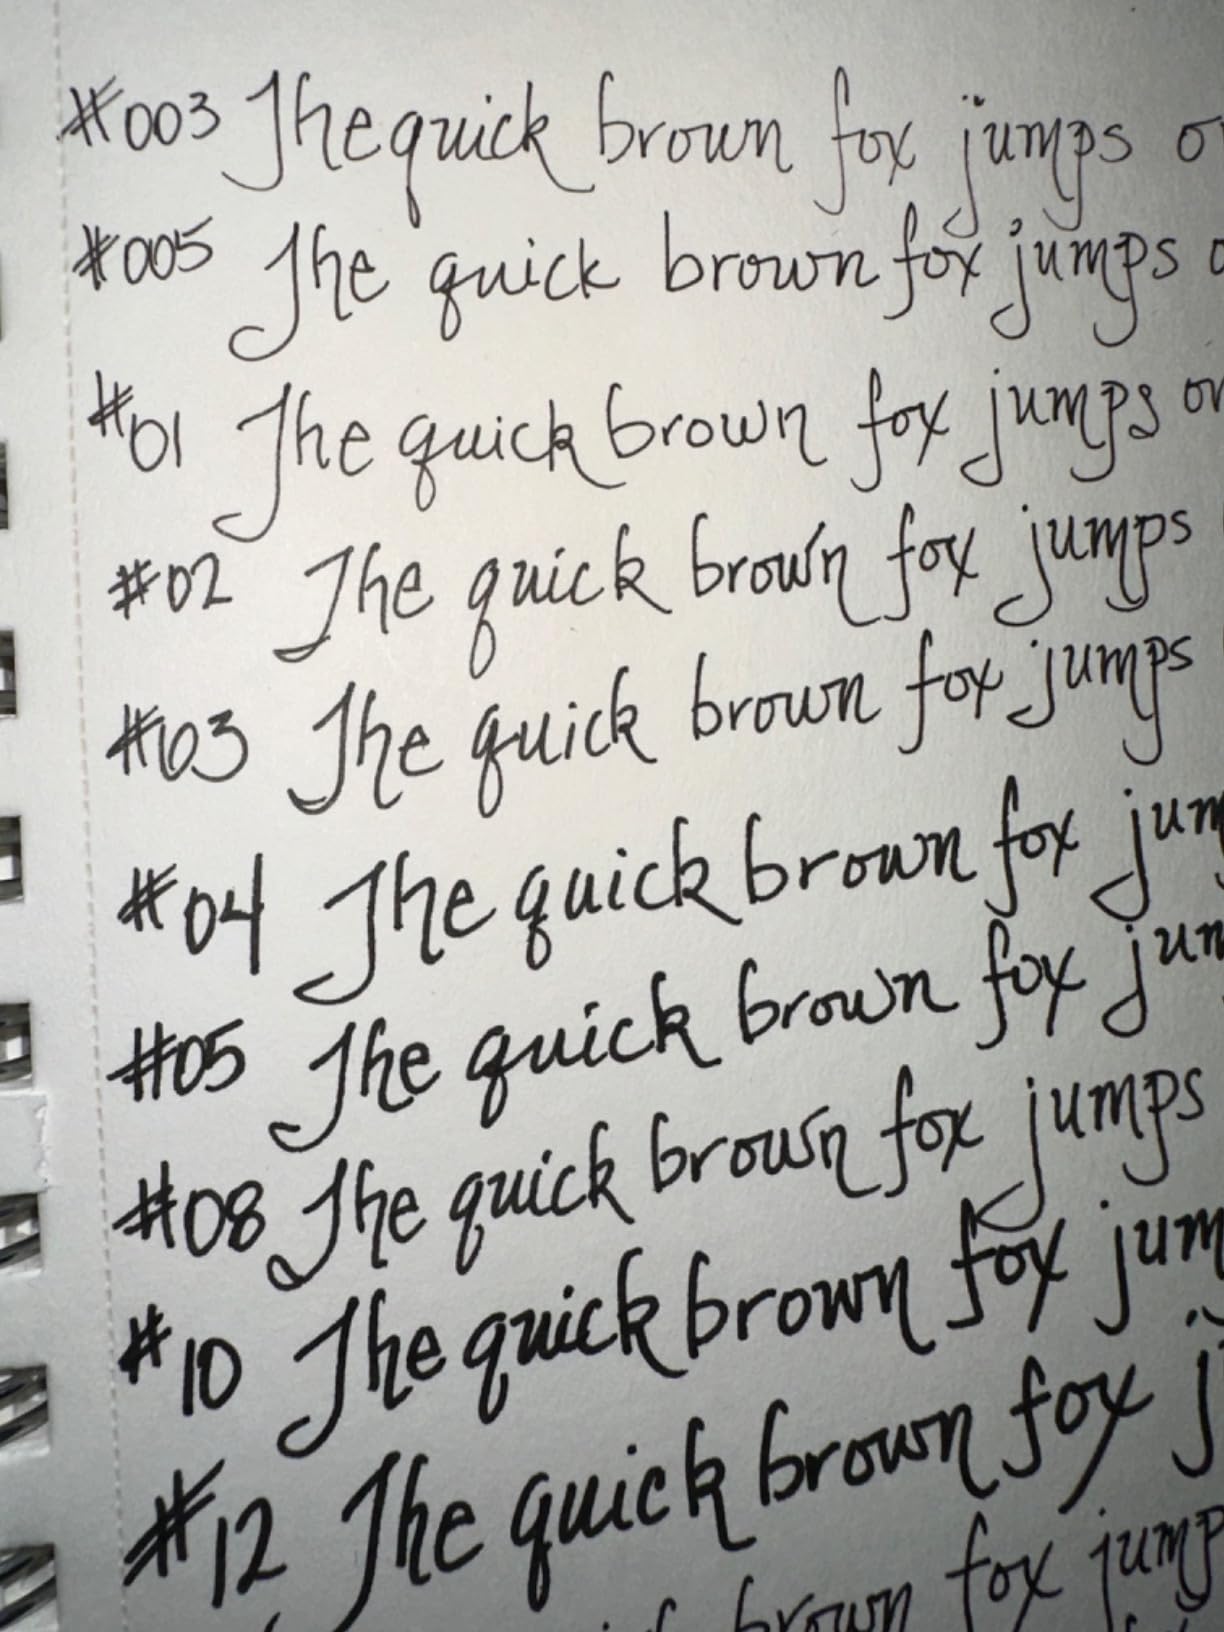 #003 The quick brown fox jumps
#005 The quick brown fox jumps
#01 The quick brown fox jumps
#02 The quick brown fox jumps
#03 The quick brown fox jumps
#04 The quick brown fox jum
#05 The quick brown fox jum
#08 The quick brown fox jumps
#10 The quick brown fox jum
#12 The quick brown fox j
brown fox jump